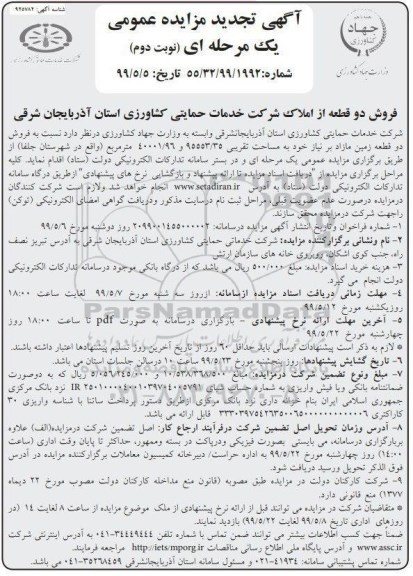 شناسه آگهی: ۹۹۵۷۸۲
آگهی تجدید مزایده عمومی
یک مرحله ای (نوبت دوم)
شماره: ۵۵/۳۲/۹۹/۱۹۹۲ تاریخ: ۹۹/۵/۵
جهاد
کشاورزی
وزارت جهاد کشاورزی
شرکت خدمات حمایتی کشاورزی
فروش دو قطعه از املاک شرکت خدمات حمایتی کشاورزی استان آذربایجان شرقی
شرکت خدمات حمایتی کشاورزی استان آذربایجانشرقی وابسته به وزارت جهاد کشاورزی درنظر دارد نسبت به فروش
دو قطعه زمین مازاد بر نیاز خود به مساحت تقریبی ۹۵۵۵۳/۳۵ و ۴۰۰۰۱/۹۶ مترمربع (واقع در شهرستان جلفا) از
طریق برگزاری مزایده عمومی یک مرحله ای و در بستر سامانه تدارکات الکترونیکی دولت (ستاد) اقدام نماید. کلیه
مراحل برگزاری مزایده از دریافت اسناد مزایده تا ارائه پیشنهاد و بازگشایی نرخ های پیشنهادی ازطریق درگاه سامانه
تدارکات الکترونیکی دولت (ستاد) به آدرس www.setadiran.ir انجام خواهد شد ولازم است شرکت کنندگان
درمزایده درصورت عدم عضویت قبلی، مراحل ثبت نام درسایت مذکور ودریافت گواهی امضای الکترونیکی (توکن)
راجهت شرکت درمزایده محقق سازند.
۱- شماره فراخوان وتاریخ انتشار آگهی مزایده درسامانه: ۲۰۹۹۰۰۱۴۵۵۰۰۰۰۰۲ روز دوشنبه مورخ ۹۹/۵/۶
۲- نام ونشانی برگزارکننده مزایده: شرکت خدماتی حمایتی کشاورزی استان آذربایجان شرقی به آدرس تبریز نصف
راه، جنب کوی اشکان، روبروی خانه های سازمان ارتش
۳- هزینه خرید اسناد مزایده: مبلغ ۵۰۰/۰۰۰ ریال می باشد که از درگاه بانکی موجود درسامانه تدارکات الکترونیکی
دولت انجام می گیرد.
۴- مهلت زمانی دریافت اسناد مزایده ازسامانه: ازروز سه شنبه مورخ ۹۹/۵/۷ لغایت ساعت ۱۸:۰۰
روزیکشنبه مورخ ۹۹/۵/۱۲
۵- آخرین مهلت ارائه نرخ پیشنهادی - بارگزاری درسامانه به صورت pdf تا ساعت ۱۸:۰۰ روز
چهارشنبه مورخ ۹۹/۵/۲۲
* لازم به ذکر است پیشنهادات ارسالی باید حداقل ۶۰ روز از تاریخ آخرین روز تسلیم پیشنهادها اعتبار داشته باشند.
۶- تاریخ گشایش پیشنهادها: روز پنجشنبه مورخ ۹۹/۵/۲۳ ساعت ۱۰ درسالن جلسات استان می باشد.
ضمانتنامه بانکی ویا فیش واریزی به شماره حساب شبای IR نزد بانک مرکزی
جمهوری اسلامی ایران بنام خزانه داری نزد بانک مرکزی ازطریق دستور پرداخت ساتنا با شناسه واریزی ۳۰
کاراکتری قابل ارائه می باشد.
۸- آدرس وزمان تحویل اصل تضمین شرکت درفرآیند ارجاع کار: اصل تضمین شرکت درمزایده(الف) علاوه
بربارگزاری درسامانه، می بایستی بصورت فیزیکی ودرپاکت در بسته وممهور، حداکثر تا پایان وقت اداری (ساعت
۱۴:۰۰) روز چهارشنبه مورخ ۹۹/۵/۲۲ به اداره حراست/ دبیرخانه کمیسیون معاملات برگزارکننده مزایده در آدرس
فوق الذکر تحویل ورسید دریافت شود.
۹- شرکت کارکنان دولت در مزایده طبق مصوبه (قانون منع مداخله کارکنان دولت مصوب مورخ ۲۲ دیماه
۱۳۳۷) منع قانونی دارد.
* متقاضیان شرکت در مزایده می توانند قبل از ارائه نرخ پیشنهادی از ملک موضوع مزایده از ساعت ۸ لغایت ۱۴ (در
روزهای اداری تاریخ ۹۹/۵/۸ لغایت ۹۹/۵/۲۲) بازدید نمایند.
ضمناً جهت کسب اطلاعات بیشتر می توانند ضمن تماس با شماره تلفن ۳۴۴۴۹۴۴۴-۰۴۱ به آدرس اینترنتی شرکت
www.assc.ir و آدرس پایگاه ملی اطلاع رسانی مناقصات http://iets/mporg.ir مراجعه فرمایند.
شماره تماس پشتیبانی سامانه: ۴۱۹۳۴-۰۲۱ و تلفن مسئول سامانه استان آذربایجانشرقی ۳۵۲۶۸۴۵۹-۰۴۱ می باشد.
ParsNamadData